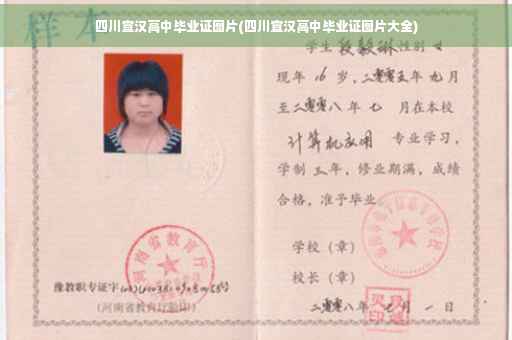 四川宣汉高中毕业证图片(四川宣汉高中毕业证图片大全)
样本
学生段毅琳性别女
现年16岁,二零零五年九月
至二零零八年七月在本校
计算机应用 专业学习,
学制三年,修业期满,成绩
合格,准予毕业
学校(章)
校长(章)
二零零八年 月一日
河南省教育厅
豫教职专证字
(河南省教育厅验印)